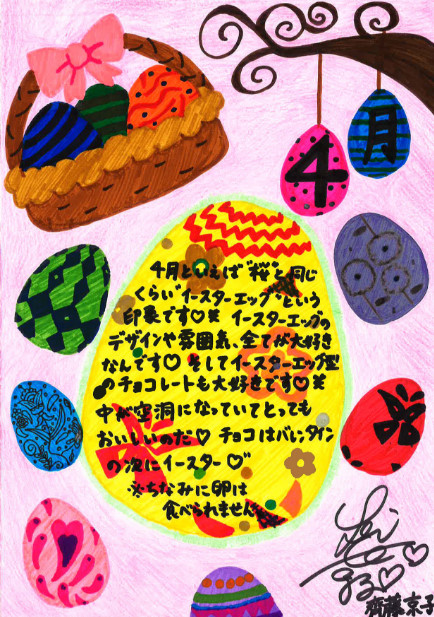 4月
4月といえば"桜"と同じ
くらい"イースターエッグ"という
印象です♡※ イースターエッグの
デザインや雰囲気、全てが大好き
なんです♡ そしてイースターエッグ型
のチョコレートも大好きです♡※
中が空洞になっていてとっても
おいしいのだ♡ チョコはバレンタイン
の次にイースター♡
※ちなみに卵は
食べられません
齊藤京子